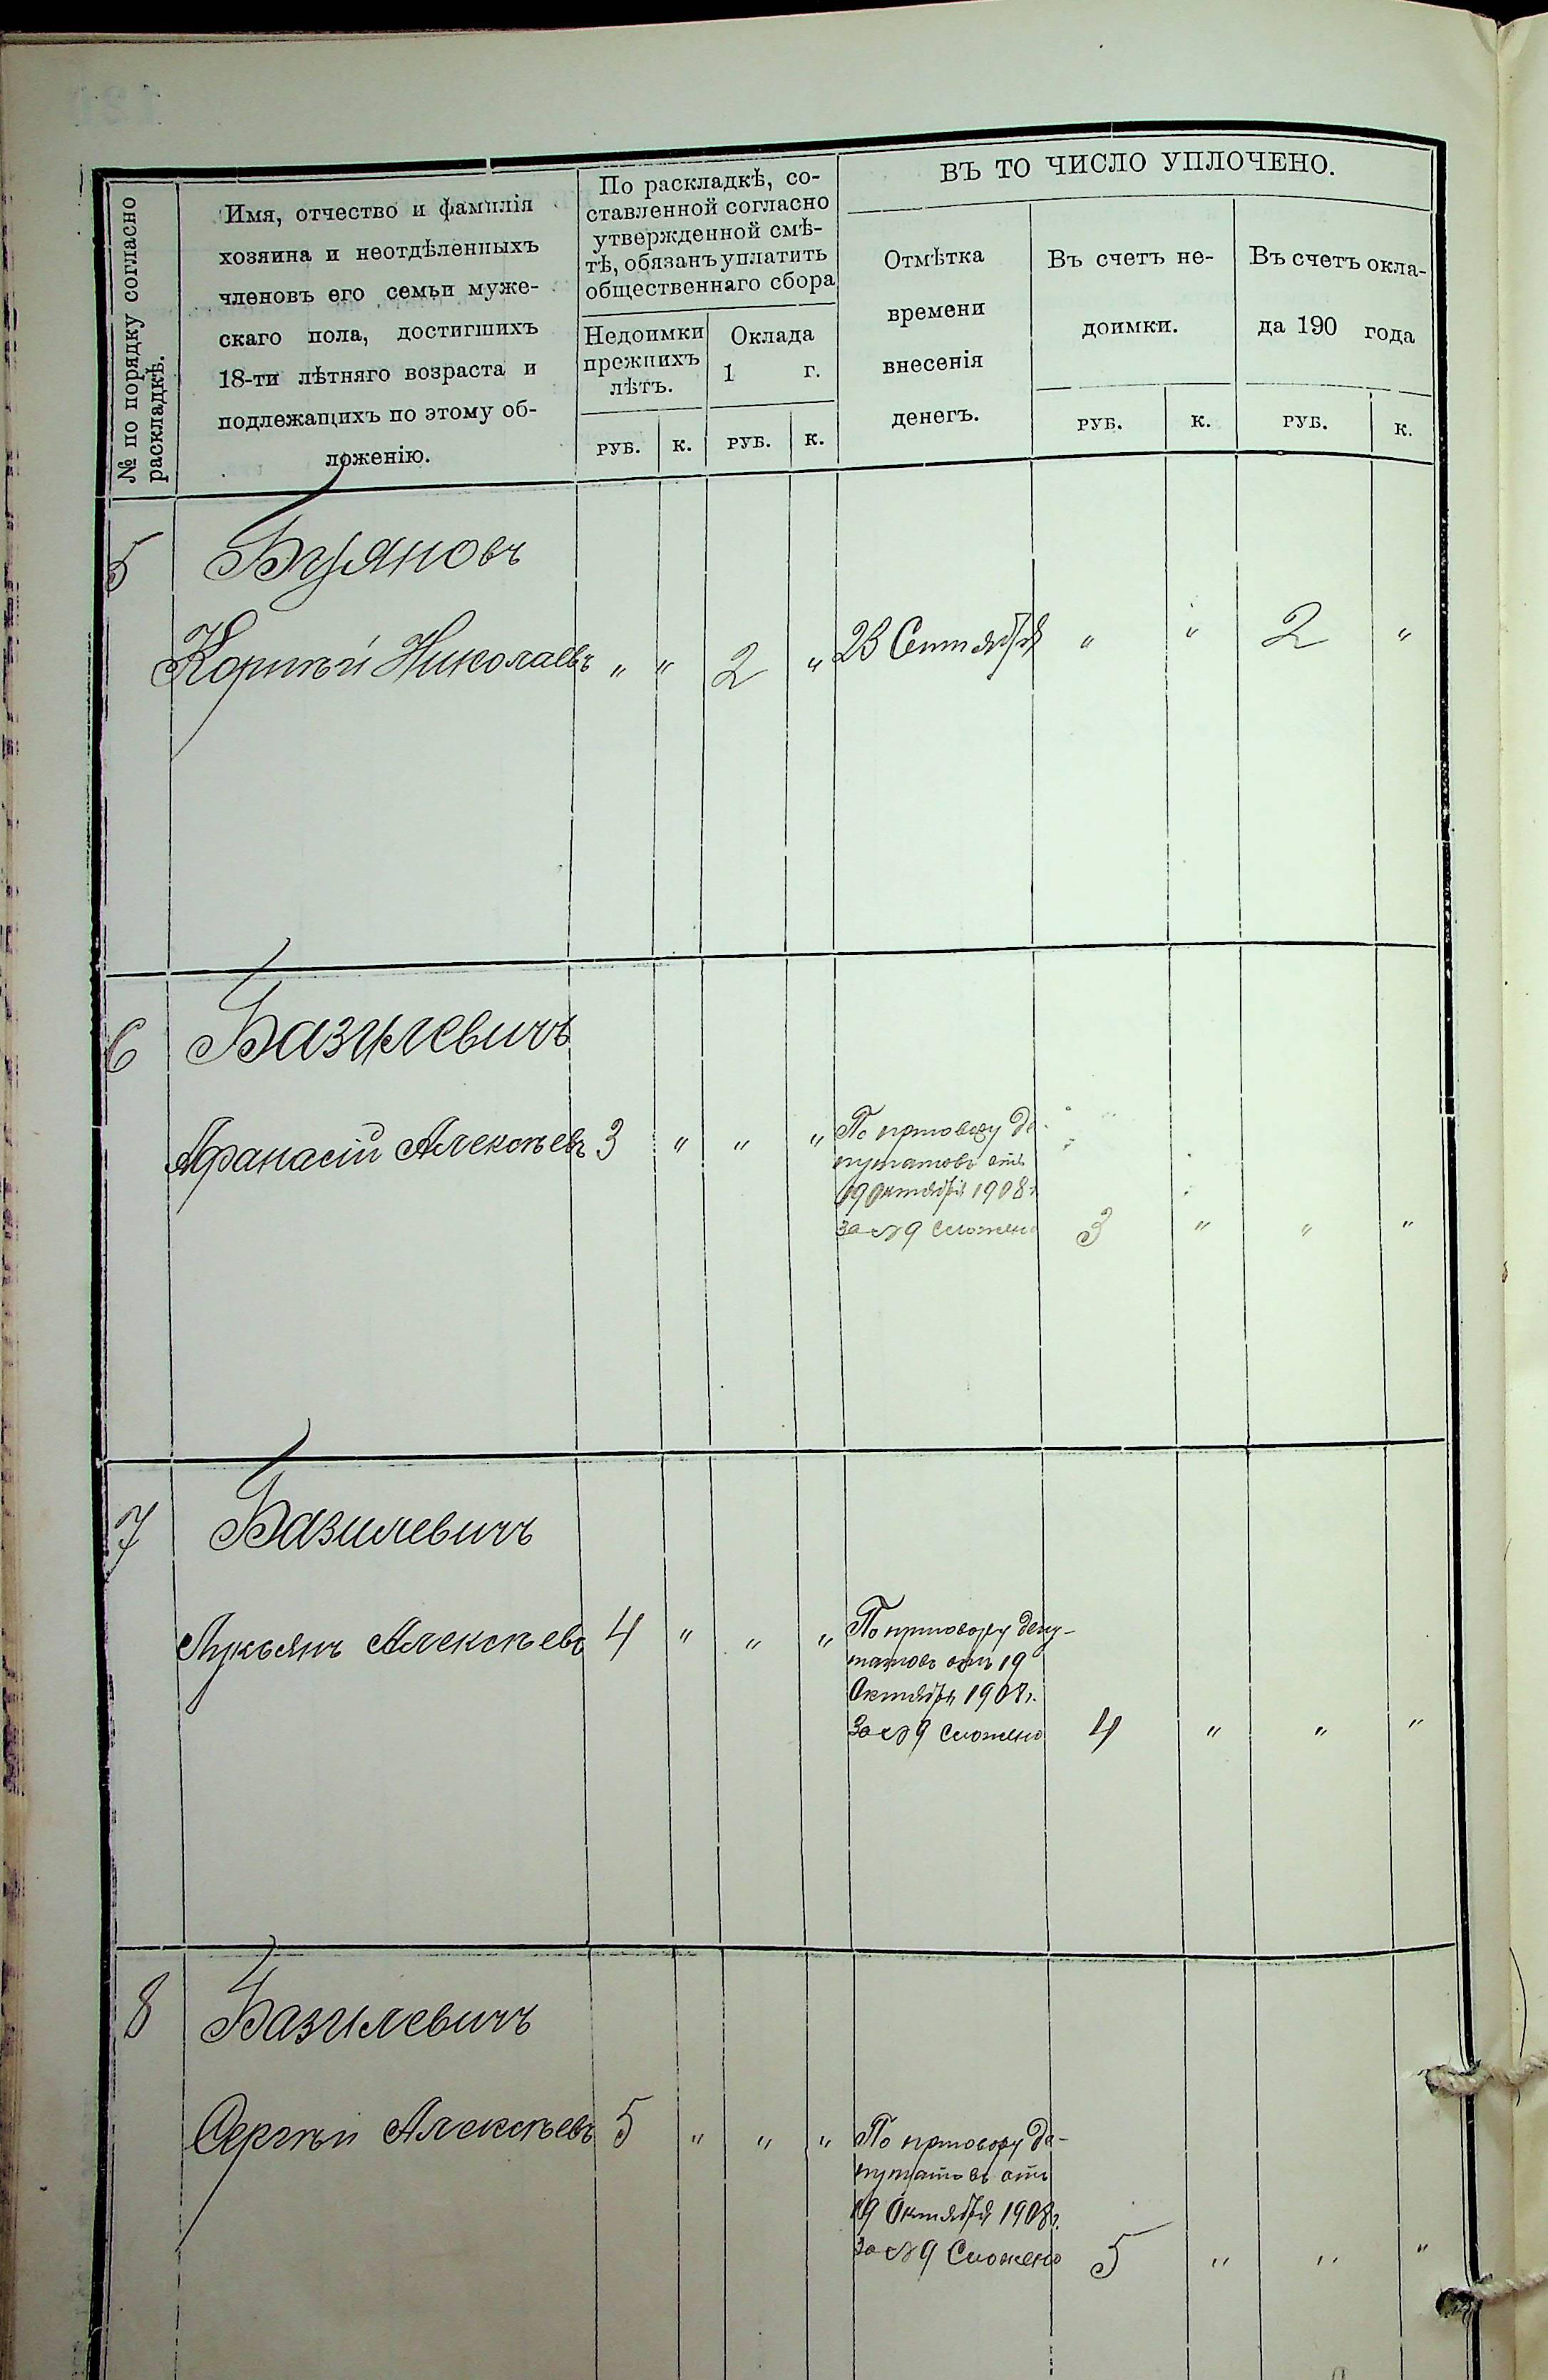 № по порядку согласно
раскладкѣ.
Имя, отчество и фамилія
хозяина и неотдѣленныхъ
членовъ его семьи муже-
скаго пола, достигшихъ
18-ти лѣтняго возраста и
подлежащихъ по этому об-
ложенію.
По раскладкѣ, со-
ставленной согласно
утвержденной смѣ-
тѣ, обязанъ уплатить
общественнаго сбора
Недоимки
прежнихъ
лѣтъ.
РУБ. К.
Оклада
1 г.
РУБ. К.
ВЪ ТО ЧИСЛО УПЛОЧЕНО.
Отмѣтка
времени
внесенія
денегъ.
Въ счетъ не-
доимки.
РУБ. К.
Въ счетъ окла-
да 190 года
РУБ. К.
5 Буяновъ
Корнѣй Николаевъ " " 2 " 23 Сентября " " 2 "
6 Базилевичъ
Афанасій Алексѣевъ 3 " " " По приговору де-
путатовъ отъ
19 Октября 1908 г.
за № 9 сложено 3 " " "
7 Базилевичъ
Лукьянъ Алексѣевъ 4 " " " По приговору депу-
татовъ отъ 19
Октября 1908 г.
за № 9 сложено 4 " " "
8 Базилевичъ
Сергѣй Алексѣевъ 5 " " " По приговору де-
путатовъ отъ
19 Октября 1908 г.
за № 9 Сложено 5 " " "